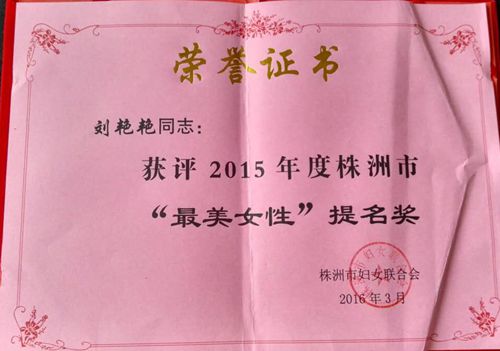 荣誉证书
刘艳艳同志：
获评2015年度株洲市
“最美女性”提名奖
株洲市妇女联合会
2016年3月